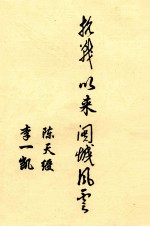 抗战以来闽城风云
陈天绶
李一凯